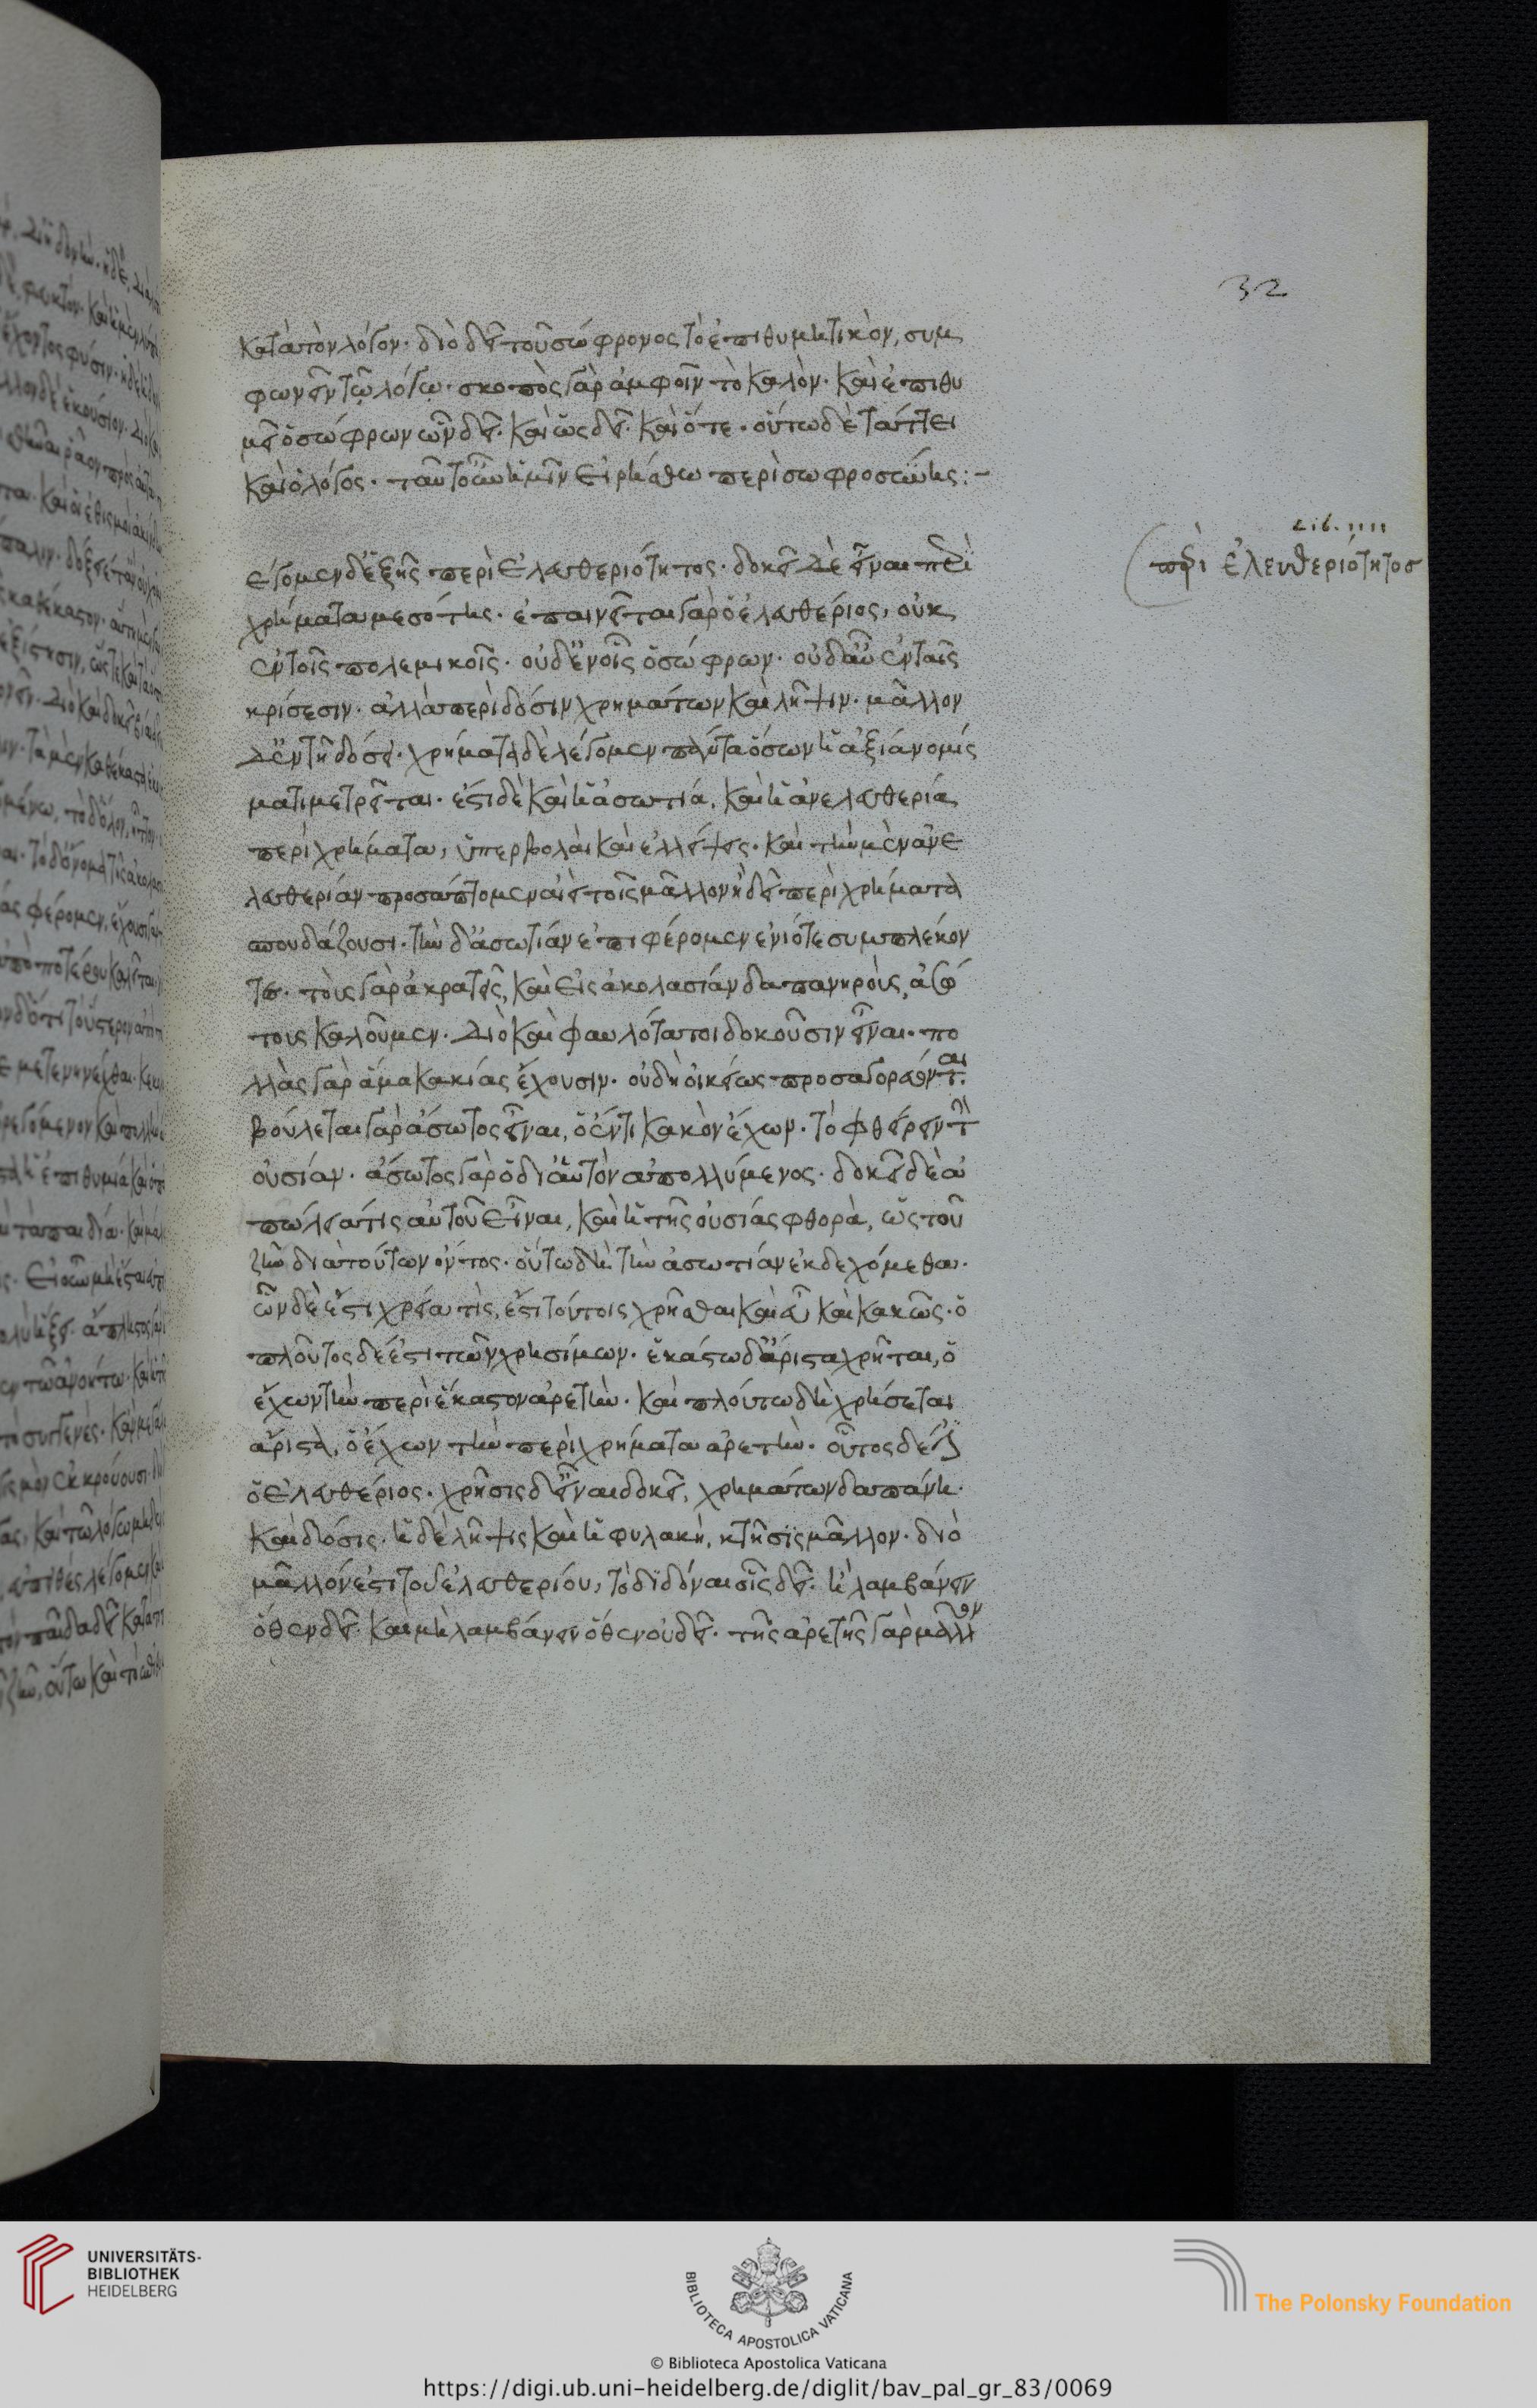 32
κατὰ τὸν λόγον· διὸ δεῖ τοῦ σώφρονος τὸ ἐπιθυμητικὸν, συμ
φωνεῖν τῷ λόγῳ· σκοπὸς γὰρ ἀμφοῖν τὸ καλὸν· καὶ ἐπιθυ
μεῖ ὁ σώφρων ὧν δεῖ· καὶ ὡς δεῖ· καὶ ὅτε· οὕτω δὲ τάττει
καὶ ὁ λόγος· ταῦτ οὖν ἡμῖν εἰρήσθω περὶ σωφροσύνης:-
λιβ. ιιιι
περὶ ἐλευθεριότητοσ
έγομεν δ' ἑξῆς περὶ ἐλευθεριότητος· δοκεῖ δὲ εἶναι περὶ
χρήματα μεσότης· ἐπαινεῖται γὰρ ὁ ἐλευθέριος, οὐκ
ἐν τοῖς πολεμικοῖς· οὐδ' ἐν οἷς ὁ σώφρων· οὐδ' αὖ ἐν ταῖς
κρίσεσιν· ἀλλὰ περὶ δόσιν χρημάτων καὶ λῆψιν· μᾶλλον
δ' ἐν τῇ δόσει· χρήματα δὲ λέγομεν πάντα ὅσων ἡ ἀξία νομίς
ματι μετρεῖται· ἐστι δὲ καὶ ἡ ἀσωτιά, καὶ ἡ ἀνελευθερία
περὶ χρήματα, ὑπερβολαὶ καὶ ἐλλείψεις· καὶ τὴν μὲν ἀνε
λευθερίαν προσάπτομεν ἀεὶ τοῖς μᾶλλον ἢ δεῖ περὶ χρήματα
σπουδάζουσι· τὴν δ' ἀσωτίαν ἐπιφέρομεν ἐνιότε συμπλέκον
τες· τοὺς γὰρ ἀκρατεῖς, καὶ εἰς ἀκολασίαν δαπανηροὺς, ἀσώ
τους καλοῦμεν· διὸ καὶ φαυλότατοι δοκοῦσιν εἶναι· πο
λλὰς γὰρ ἅμα κακίας ἔχουσιν· οὐ δὴ οἰκείως προσαγορεύονται·
βούλεται γὰρ ἄσωτος εἶναι, ὁ ἕν τι κακὸν ἔχων· τὸ φθείρειν τὴν
οὐσίαν· ἄσωτος γὰρ ὁ δι' αὑτὸν ἀπολλύμενος· δοκεῖ δὲ ἀ
πώλειά τις αὐτοῦ εἶναι, καὶ ἡ τῆς οὐσίας φθορὰ, ὡς τοῦ
ζῆν διὰ τούτων ὄντος· οὕτω δὴ τὴν ἀσωτίαν ἐκδεχόμεθα·
ὧν δὲ ἐστι χρεία τὶς, ἔστι τούτοις χρῆσθαι καὶ εὖ καὶ κακῶς· ὁ
πλοῦτος δέ ἐστι τῶν χρησίμων· ἑκάστω δ' ἄριστα χρῆται, ὁ
ἔχων τὴν περὶ ἕκαστον ἀρετὴν· καὶ πλούτω δὴ χρήσεται
ἄριστα, ὁ ἔχων τὴν περὶ χρήματα ἀρετὴν· οὗτος δέ ἐστι
ὁ ἐλευθέριος· χρῆσις δ' εἶναι δοκεῖ, χρημάτων δαπάνη·
καὶ δόσις· ἡ δὲ λῆψις καὶ ἡ φυλακή, κτῆσις μᾶλλον· διὸ
μᾶλλόν ἐστι τοῦ ἐλευθερίου, τὸ διδόναι οἷς δεῖ· ἢ λαμβάνειν
ὅθεν δεῖ· καὶ μὴ λαμβάνειν ὅθεν οὐ δεῖ· τῆς ἀρετῆς γὰρ μᾶλλον
UNIVERSITÄTS-
BIBLIOTHEK
HEIDELBERG
BIBLIOTECA APOSTOLICA VATICANA
The Polonsky Foundation
© Biblioteca Apostolica Vaticana
https://digi.ub.uni-heidelberg.de/diglit/bav_pal_gr_83/0069